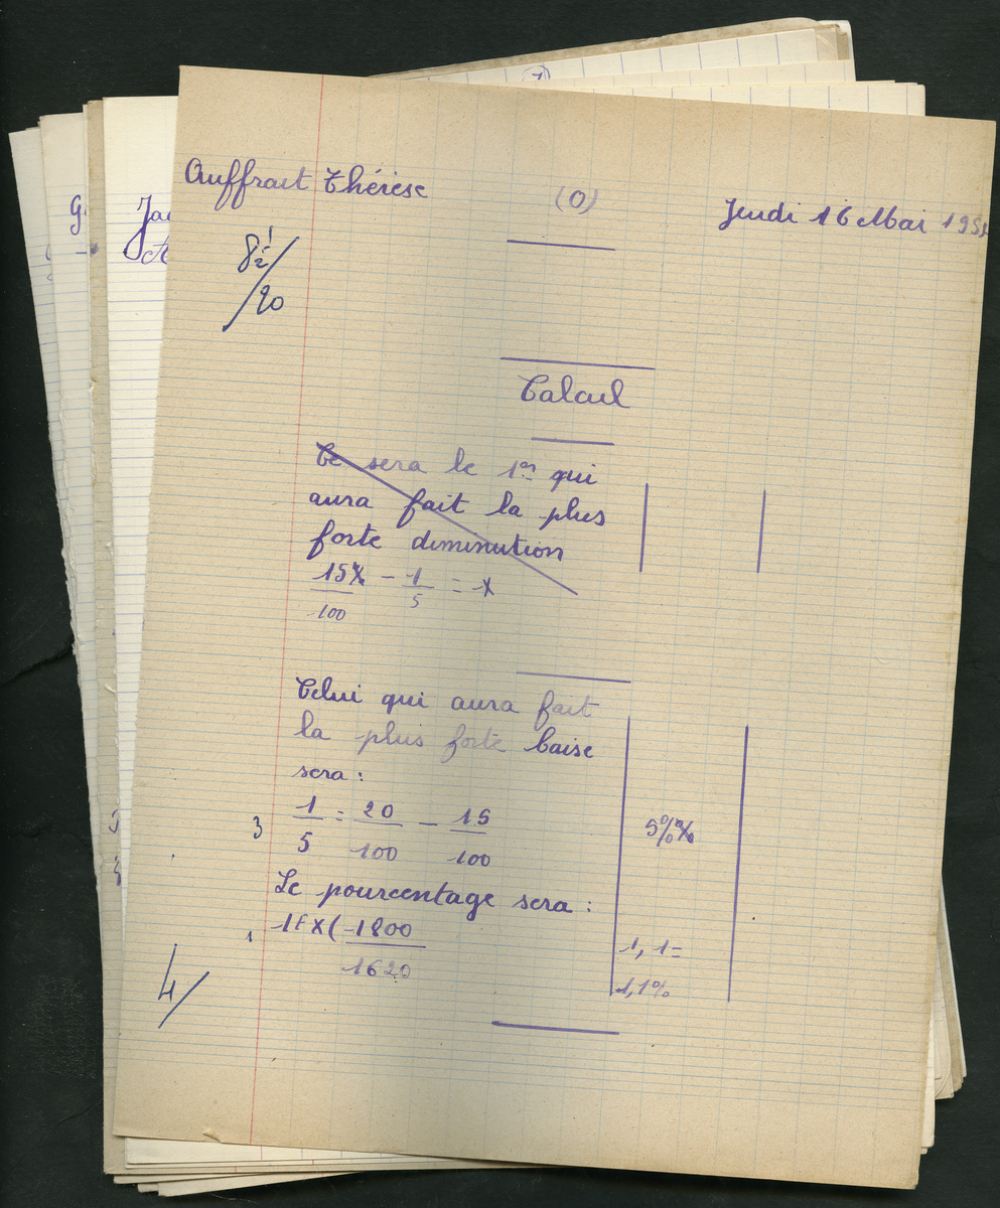 Auffrait Thérèse
(0)
Jeudi 16 Mai 195
8 1/2 / 20
Calcul
Ce sera le 1er qui
aura fait la plus
forte diminution
15% - 1/5 = x
100
Celui qui aura fait
la plus forte baise
sera :
3 1/5 = 20/100 - 15/100 5%
Le pourcentage sera :
1 1F x ( 1800 / 1620 1,1 =
1,1%
4/